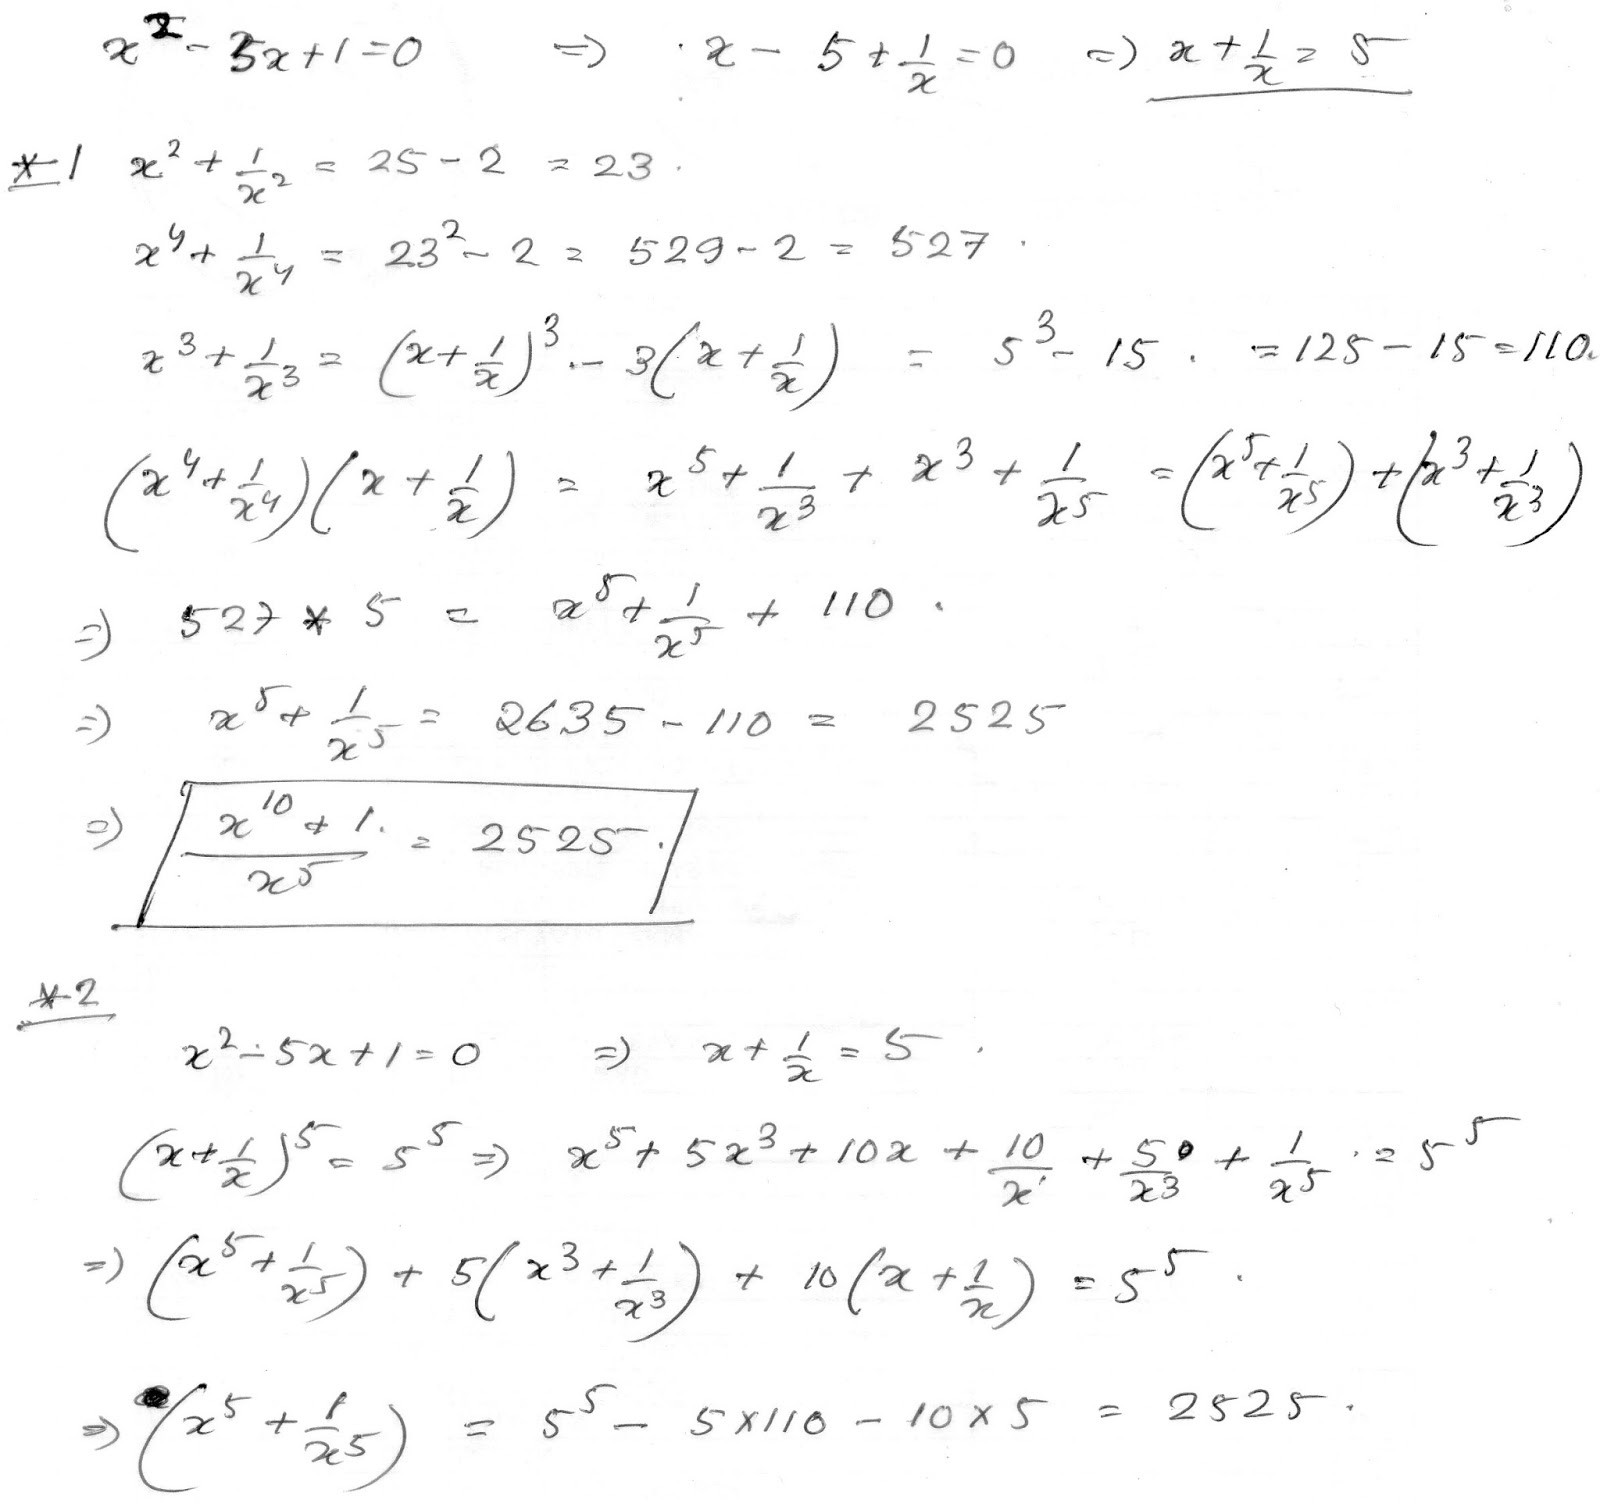 x² - 5x + 1 = 0 => x - 5 + 1/x = 0 => x + 1/x = 5
*1 x² + 1/x² = 25 - 2 = 23.
x⁴ + 1/x⁴ = 23² - 2 = 529 - 2 = 527.
x³ + 1/x³ = (x + 1/x)³ - 3(x + 1/x) = 5³ - 15. = 125 - 15 = 110.
(x⁴ + 1/x⁴)(x + 1/x) = x⁵ + 1/x³ + x³ + 1/x⁵ = (x⁵ + 1/x⁵) + (x³ + 1/x³)
=> 527 * 5 = x⁵ + 1/x⁵ + 110.
=> x⁵ + 1/x⁵ = 2635 - 110 = 2525
=> (x¹⁰ + 1)/x⁵ = 2525.
*2
x² - 5x + 1 = 0 => x + 1/x = 5.
(x + 1/x)⁵ = 5⁵ => x⁵ + 5x³ + 10x + 10/x + 5/x³ + 1/x⁵ = 5⁵
=> (x⁵ + 1/x⁵) + 5(x³ + 1/x³) + 10(x + 1/x) = 5⁵.
=> (x⁵ + 1/x⁵) = 5⁵ - 5×110 - 10×5 = 2525.